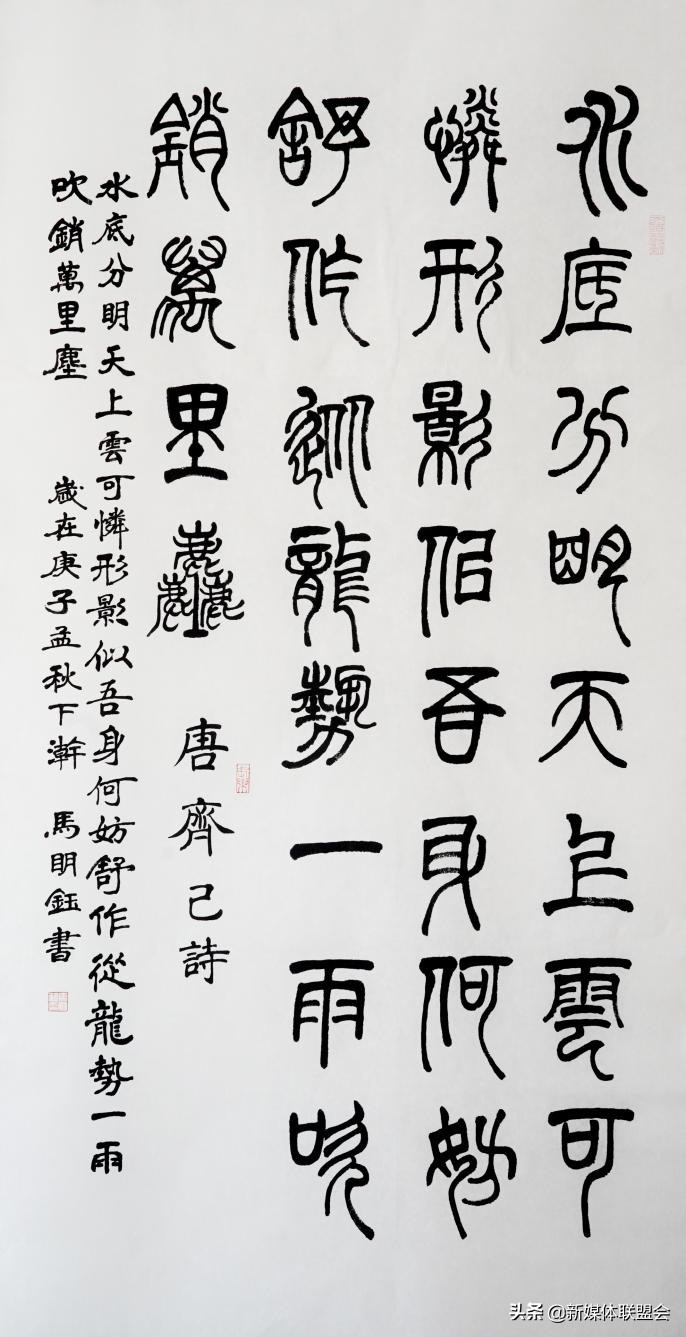 水底分明天上雲可
憐形影似吾身何妨
舒作從龍勢一雨吹
銷萬里塵
唐齊己詩
水底分明天上雲可憐形影似吾身何妨舒作從龍勢一雨
吹銷萬里塵 歲在庚子孟秋下澣 馬明鈺書
头条 @新媒体联盟会